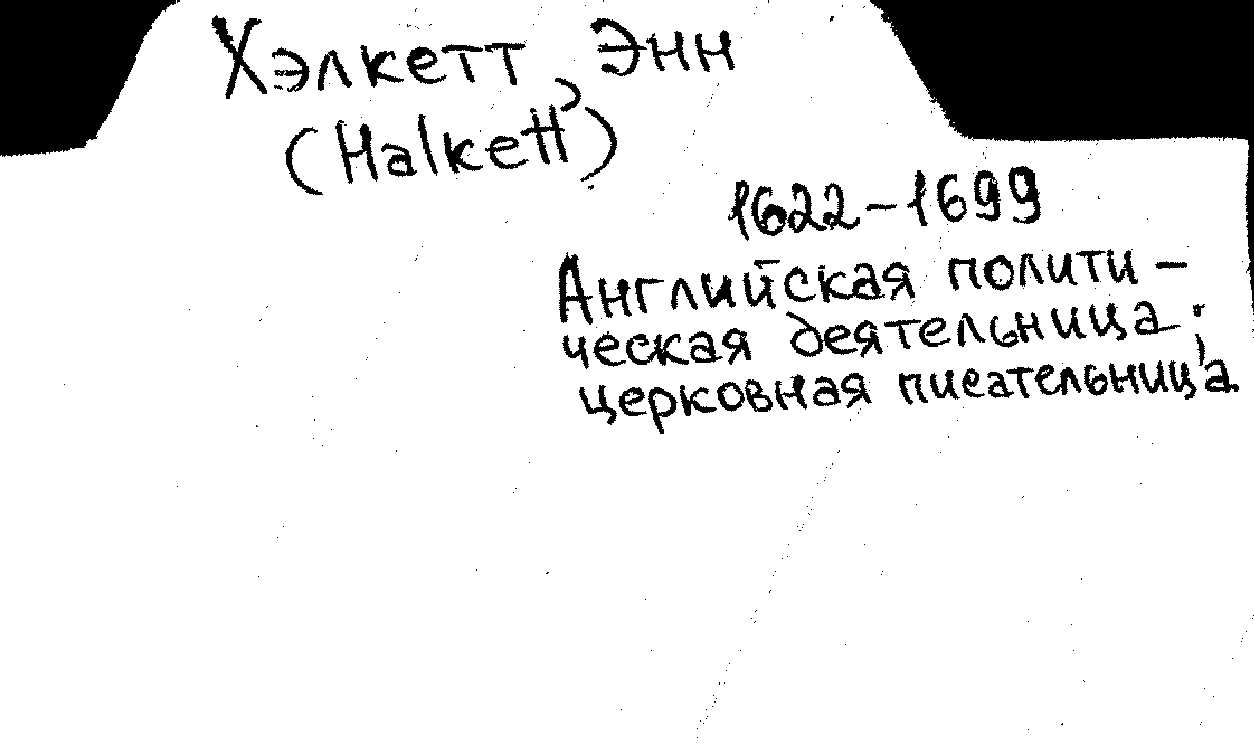 Хэлкетт, Энн
(Halkett)
1622-1699
Английская полити-
ческая деятельница;
церковная писательница.